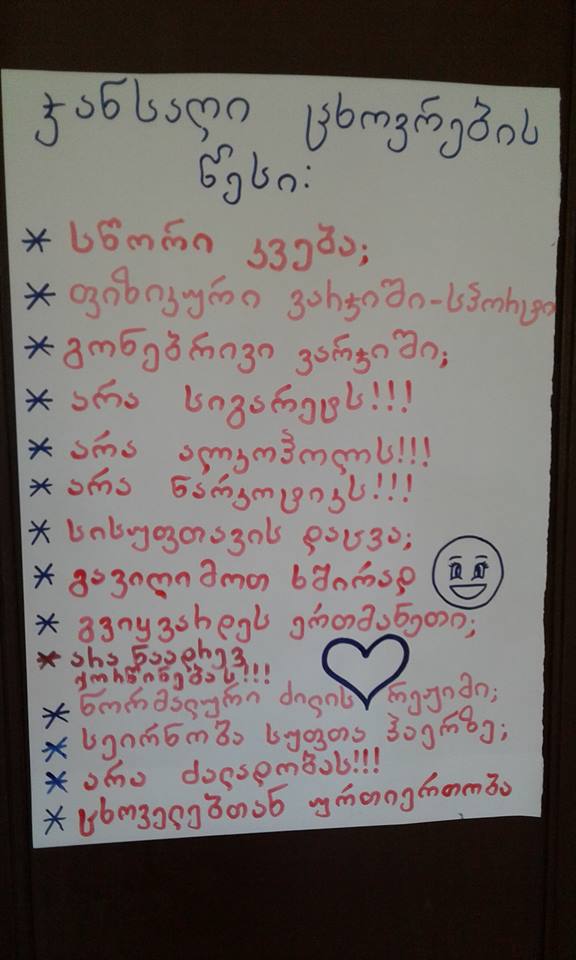 ჯანსაღი ცხოვრების
წესი:
* სწორი კვება;
* ფიზიკური ვარჯიში-სპორტი
* გონებრივი ვარჯიში;
* არა სიგარეტს!!!
* არა ალკოჰოლს!!!
* არა ნარკოტიკს!!!
* სისუფთავის დაცვა;
* გავიღიმოთ ხშირად
* გვიყვარდეს ერთმანეთი;
* არა ნაადრევ
ქორწინებას!!!
* ნორმალური ძილის რეჟიმი;
* სეირნობა სუფთა ჰაერზე;
* არა ძალადობას!!!
* ცხოველებთან ურთიერთობა